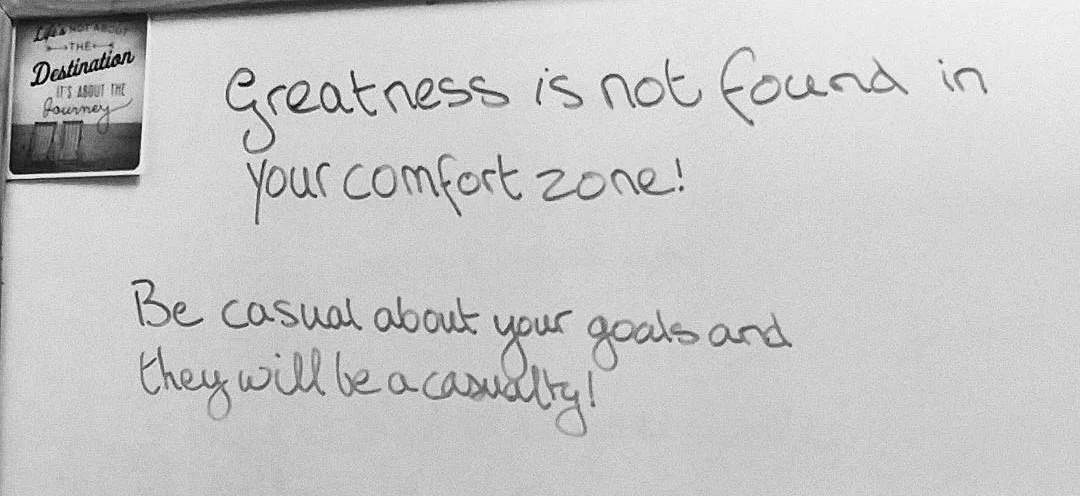 Life's NOT ABOUT
THE
Destination
IT'S ABOUT THE
Journey
Greatness is not found in
your comfort zone!
Be casual about your goals and
they will be a casualty!